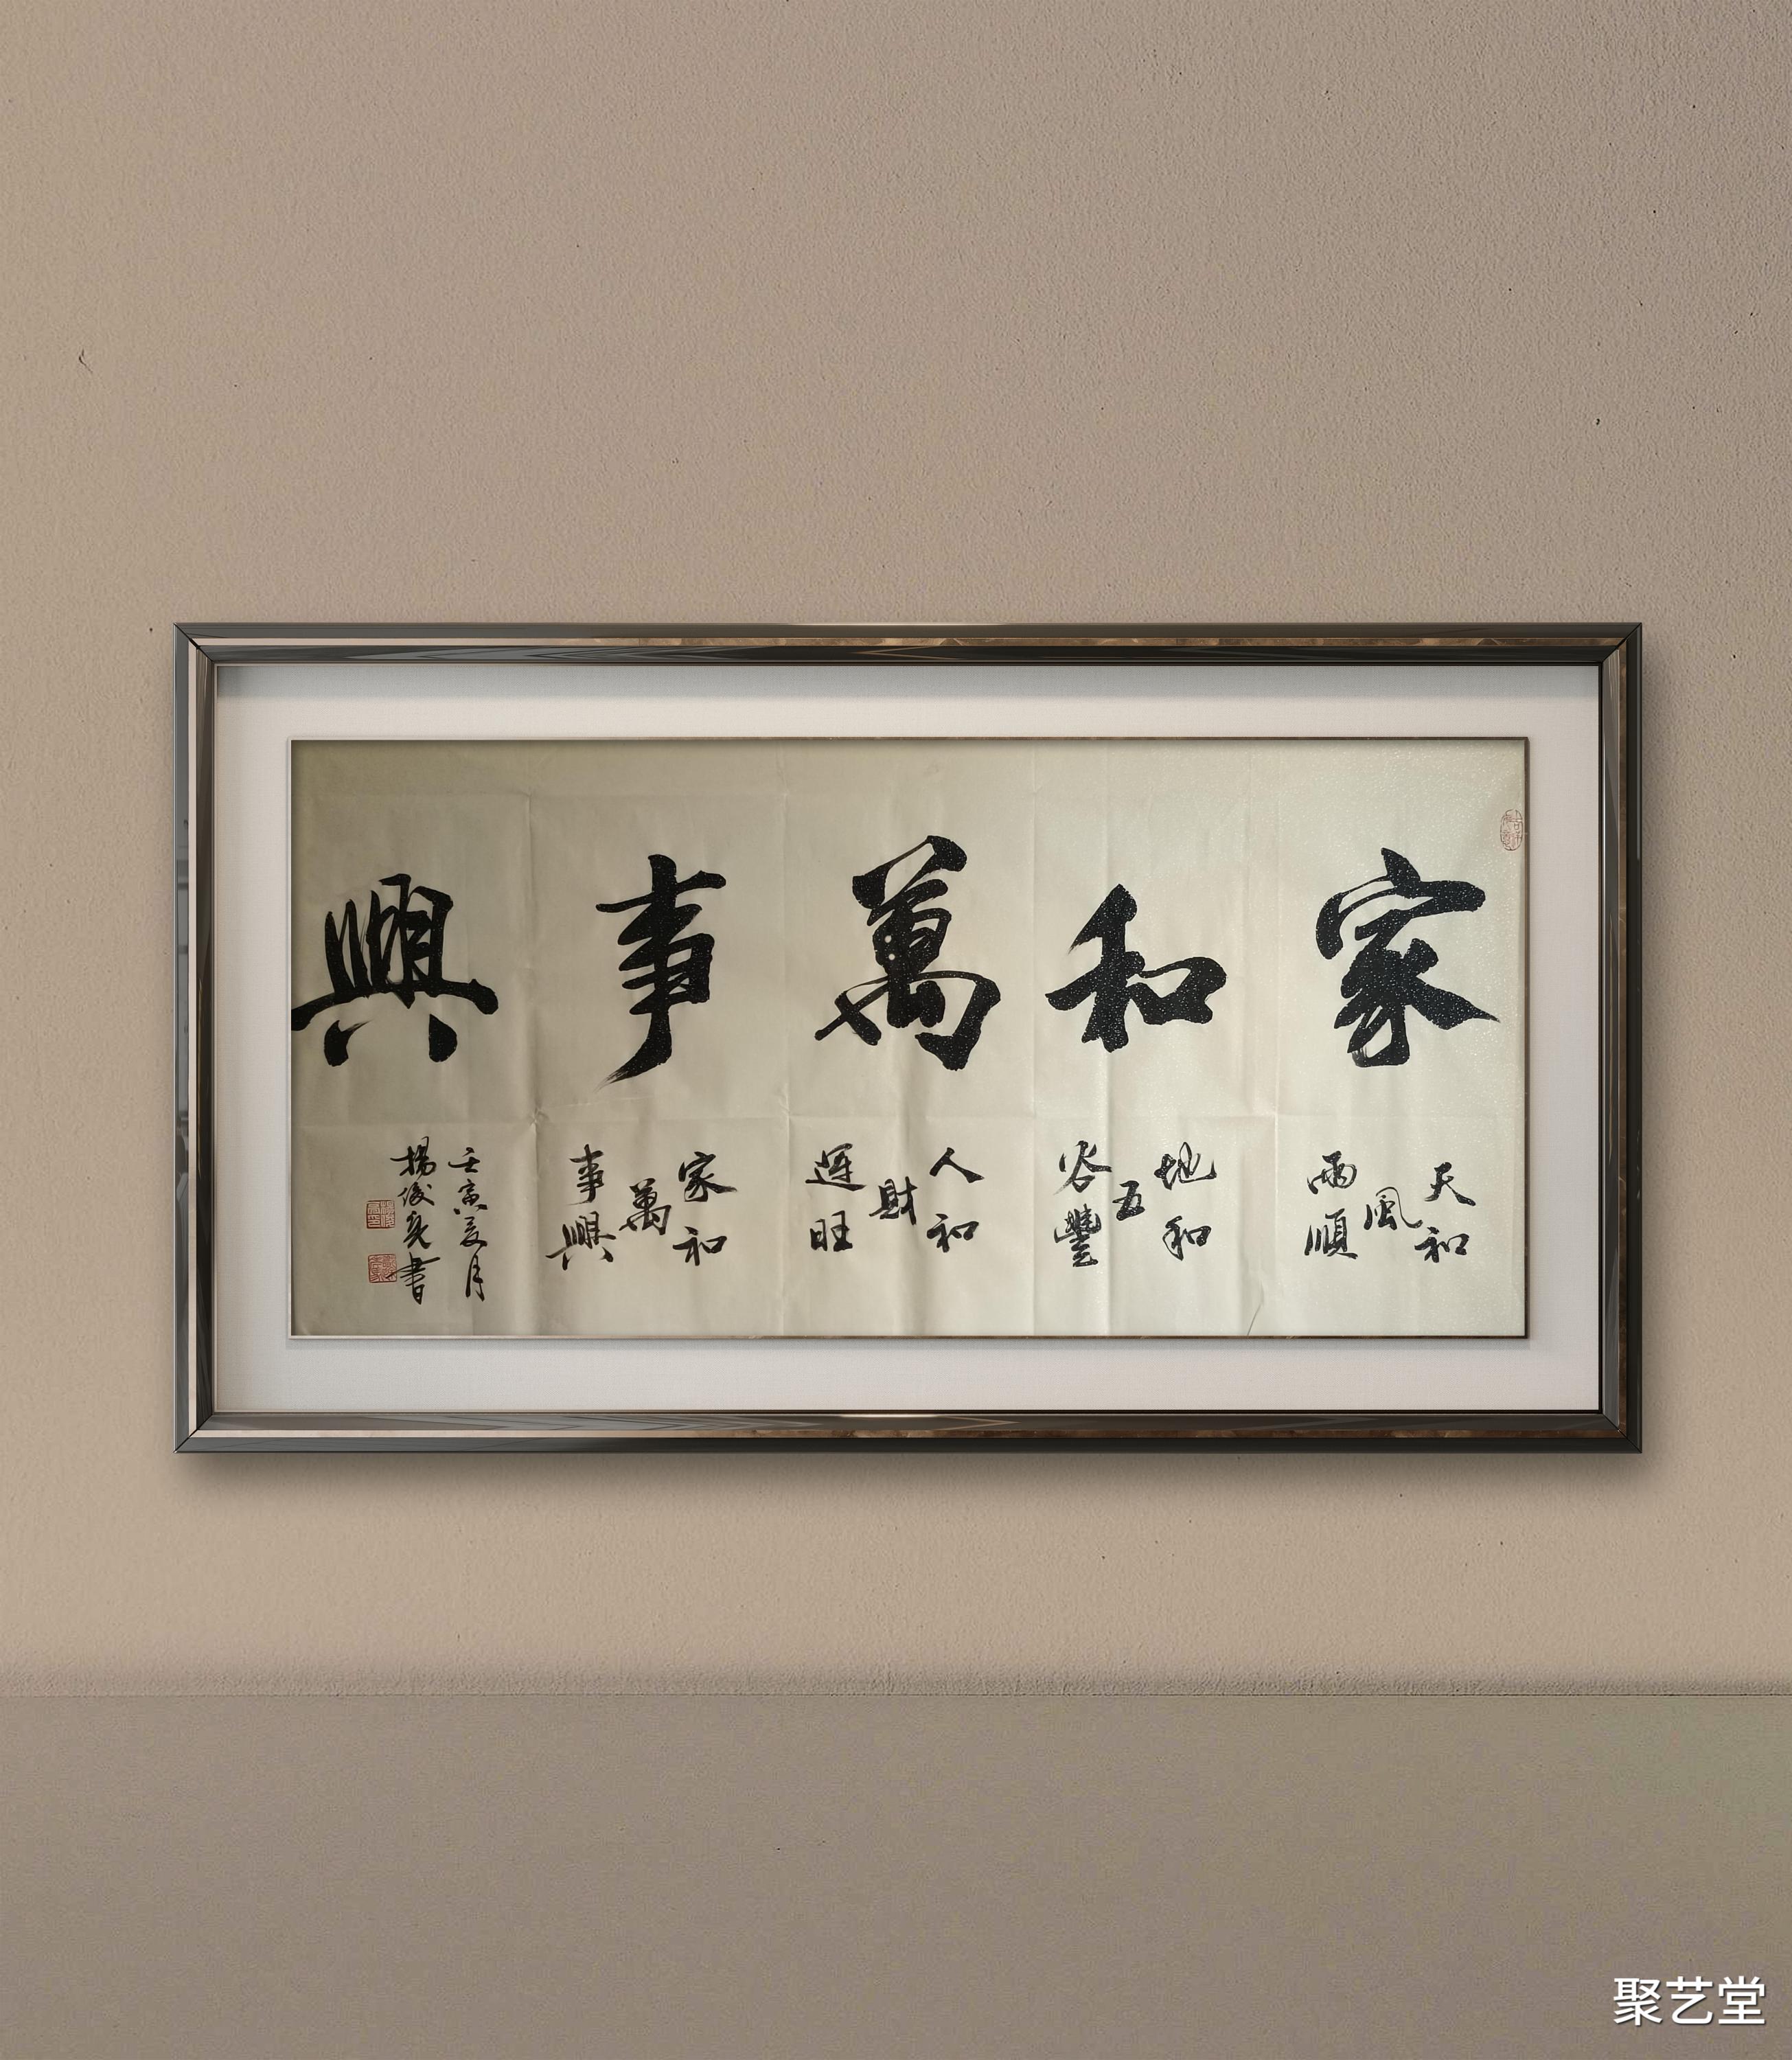 家和萬事興
天和風雨順
地和五谷豐
人和財運旺
家和萬事興
壬寅夏月
楊俊亮書
聚艺堂